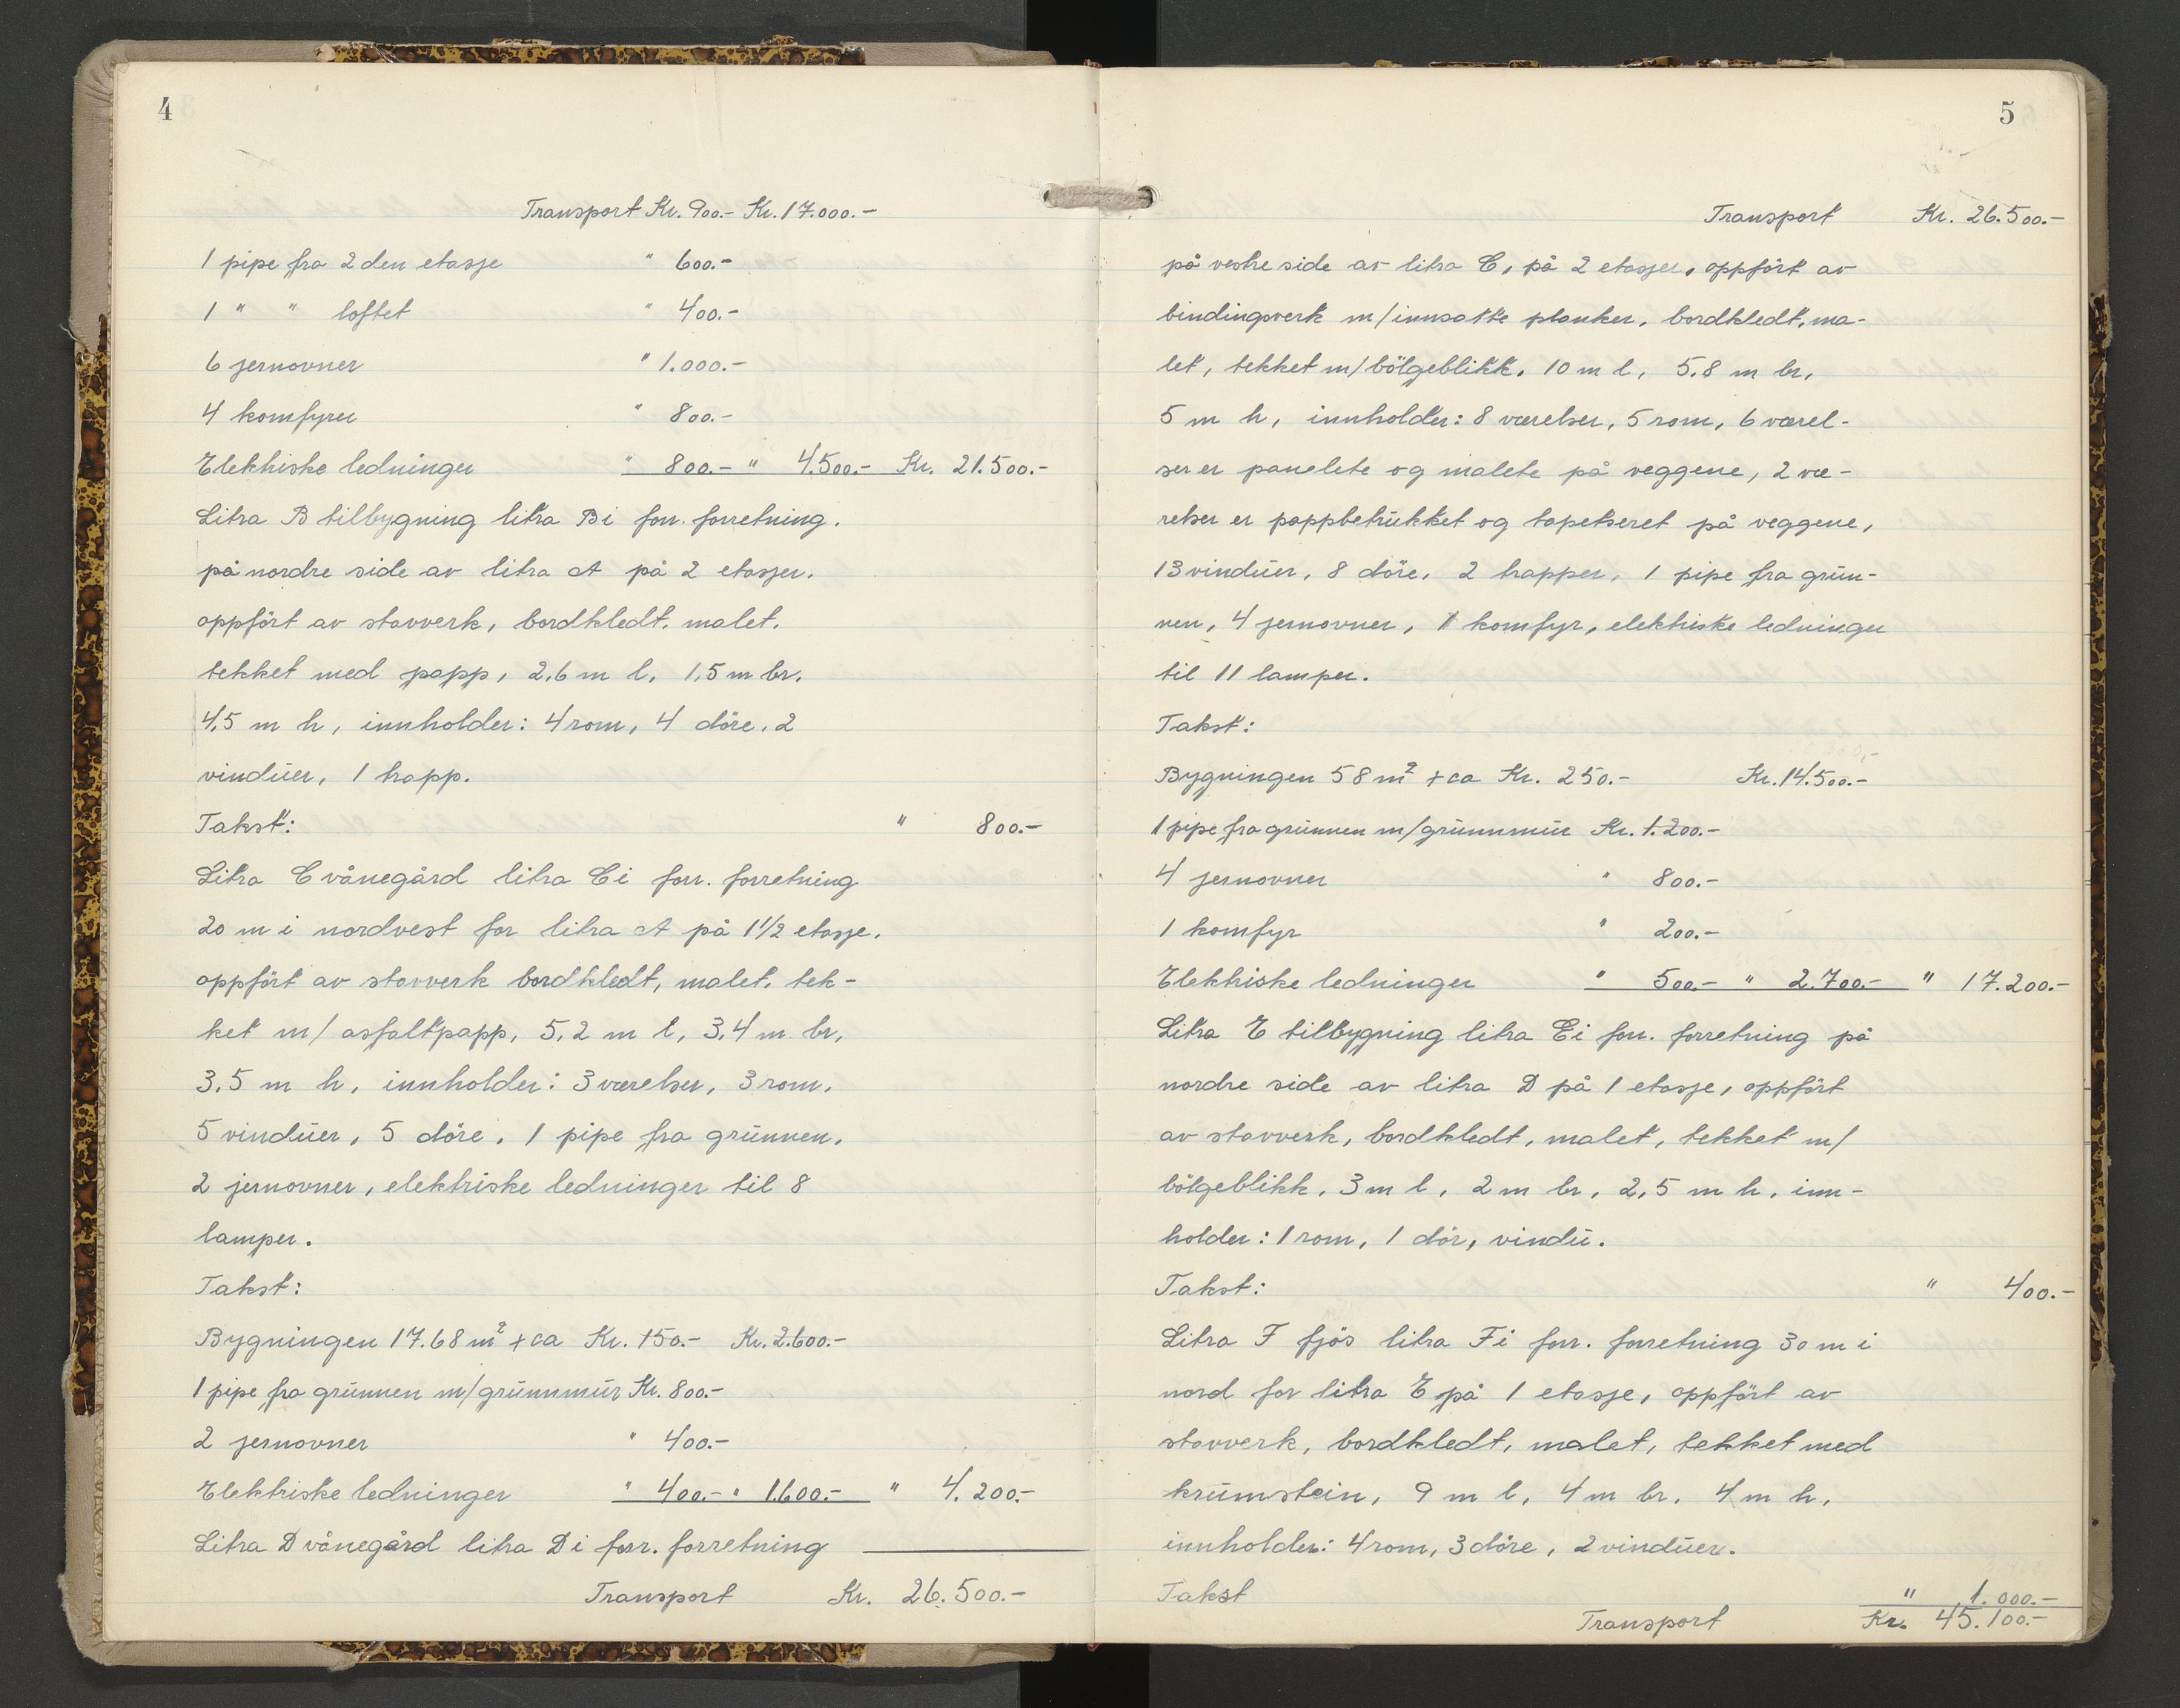 4
Transport Kr. 900.- Kr. 17.000.-
1 pipe fra 2den etasje " 600.-
1 " " loftet " 400.-
6 jernovner " 1.000.-
4 komfyrer " 800.-
Elektriske ledninger " 800.- " 4.500.- Kr. 21.500.-
Litra B tilbygning litra B i forr. forretning.
på nordre side av litra A på 2 etasjer.
oppfört av stavverk, bordkledt, malet.
tekket med papp, 2,6 m l, 1,5 m br,
4,5 m h, innholder: 4 rom, 4 döre, 2
vinduer, 1 trapp.
Takst: " 800.-
Litra C vånegård litra C i forr. forretning
20 m i nordvest for litra A på 1 1/2 etasje.
oppfört av stavverk bordkledt, malet, tek-
ket m/ asfaltpapp, 5,2 m l, 3,4 m br,
3,5 m h, innholder: 3 værelser, 3 rom,
5 vinduer, 5 döre, 1 pipe fra grunnen,
2 jernovner, elektriske ledninger til 8
lamper.
Takst:
Bygningen 17.68 m² + ca Kr. 150.- Kr. 2.600.-
1 pipe fra grunnen m/grunnmur Kr. 800.-
2 jernovner " 400.-
Elektriske ledninger " 400.- " 1.600.- " 4.200.-
Litra D vånegård litra D i forr. forretning
Transport Kr. 26.500.-
5
Transport Kr. 26.500.-
på vestre side av litra C, på 2 etasjer, oppfört av
bindingsverk m/innsatte planker, bordkledt, ma-
let, tekket m/bölgeblikk, 10 m l, 5,8 m br,
5 m h, innholder: 8 værelser, 5 rom, 6 værel-
ser er panelete og malete på veggene, 2 væ-
relser er pappbetrukket og tapetseret på veggene,
13 vinduer, 8 döre, 2 trapper, 1 pipe fra grun-
nen, 4 jernovner, 1 komfyr, elektriske ledninger
til 11 lamper.
Takst:
Bygningen 58 m² + ca Kr. 250.- Kr. 14.500.-
1 pipe fra grunnen m/grunnmur Kr. 1.200.-
4 jernovner " 800.-
1 komfyr " 200.-
Elektriske ledninger " 500.- " 2.700.- " 17.200.-
Litra E tilbygning litra E i forr. forretning på
nordre side av litra D på 1 etasje, oppfört
av stavverk, bordkledt, malet, tekket m/
bölgeblikk, 3 m l, 2 m br, 2,5 m h, inn-
holder: 1 rom, 1 dör, vindu.
Takst: " 400.-
Litra F fjös litra F i forr. forretning 30 m i
nord for litra E på 1 etasje, oppfört av
stavverk, bordkledt, malet, tekket med
krumstein, 9 m l, 4 m br, 4 m h,
innholder: 4 rom, 3 döre, 2 vinduer.
Takst " 1.000.-
Transport Kr. 45.100.-